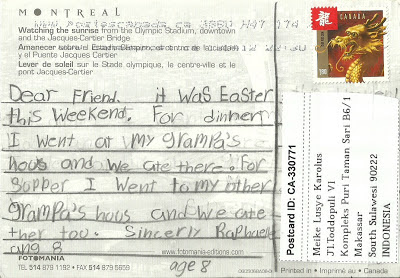 MONTRÉAL
Watching the sunrise from the Olympic Stadium, downtown
and the Jacques-Cartier Bridge
Amanecer sobre el Estadio Olímpico, el centro de la ciudad
y el Puente Jacques-Cartier
Lever de soleil sur le Stade olympique, le centre-ville et le
pont Jacques-Cartier
Dear Friend. it was Easter
this Weekend. For dinner
I went at my grampa's
hous and we ate there. For
Supper I went to my other
grampa's hous and we ate
ther too. Sincerly Raphaelle
ang 8
age 8
www.fotomaniaeditions.com
FOTOMANIA
TEL 514 879 1192 • FAX 514 879 5858
龍
CANADA
Postcard ID: CA-330771
Meike Lusye Karolus
Jl.Toddopuli VI
Kompleks Puri Taman Sari B6/1
Makassar
South Sulawesi 90222
INDONESIA
Printed in • Imprimé au • Canada